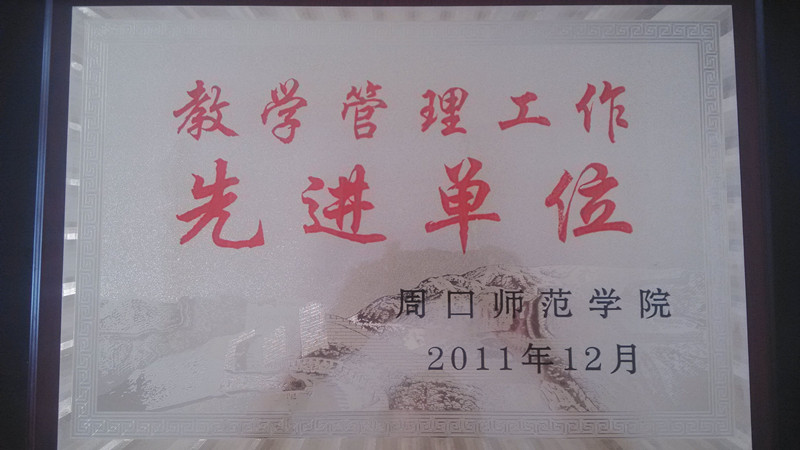 教学管理工作
先进单位
周口师范学院
2011年12月